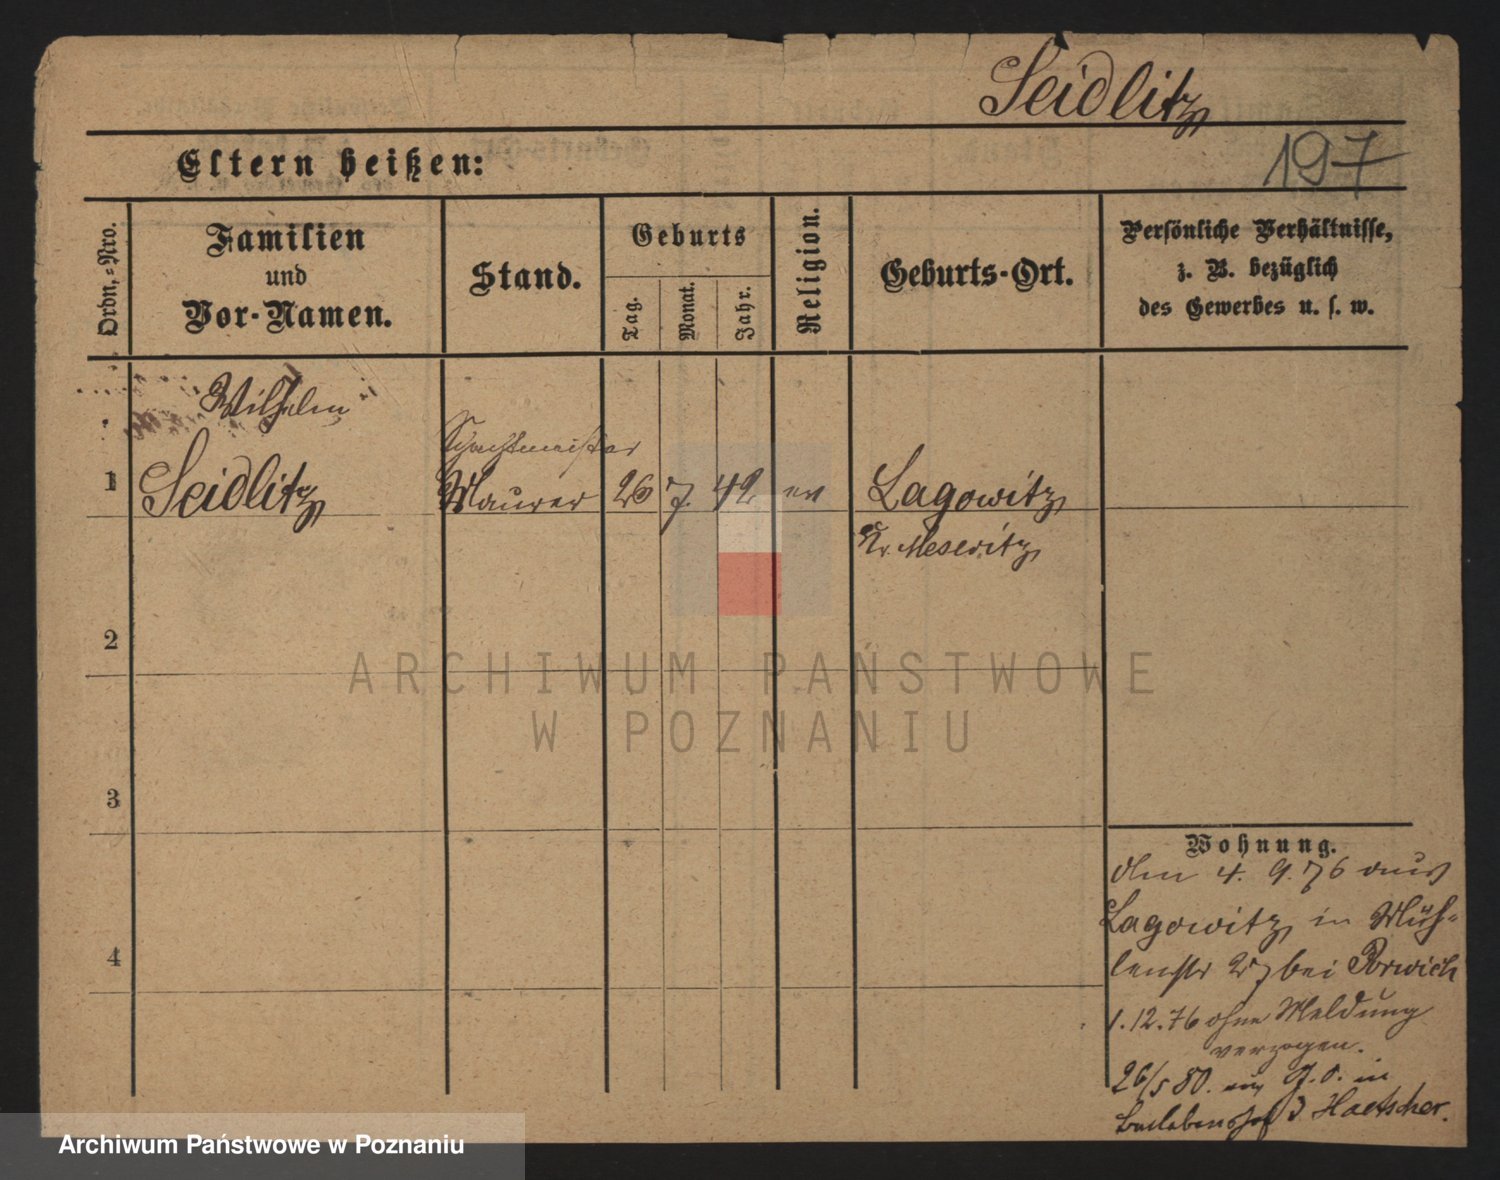 Seidlitz
197
Eltern heißen:
Ordn.-Nro.
Familien
und
Vor-Namen.
Stand.
Geburts
Tag.
Monat.
Jahr.
Religion.
Geburts-Ort.
Persönliche Verhältnisse,
z. B. bezüglich
des Gewerbes u. s. w.
Wilhelm
Schachtmeister
1 Seidlitz Maurer 26 7. 42 ev Lagowitz
Kr. Meseritz
2
3
4
Wohnung.
den 4. 9. 76 aus
Lagowitz in Müh-
lenstr 27 bei Porwich
1.12.76 ohne Meldung
verzogen.
26/5 80. aus in
Haetscher.
ARCHIWUM PAŃSTWOWE
W POZNANIU
Archiwum Państwowe w Poznaniu